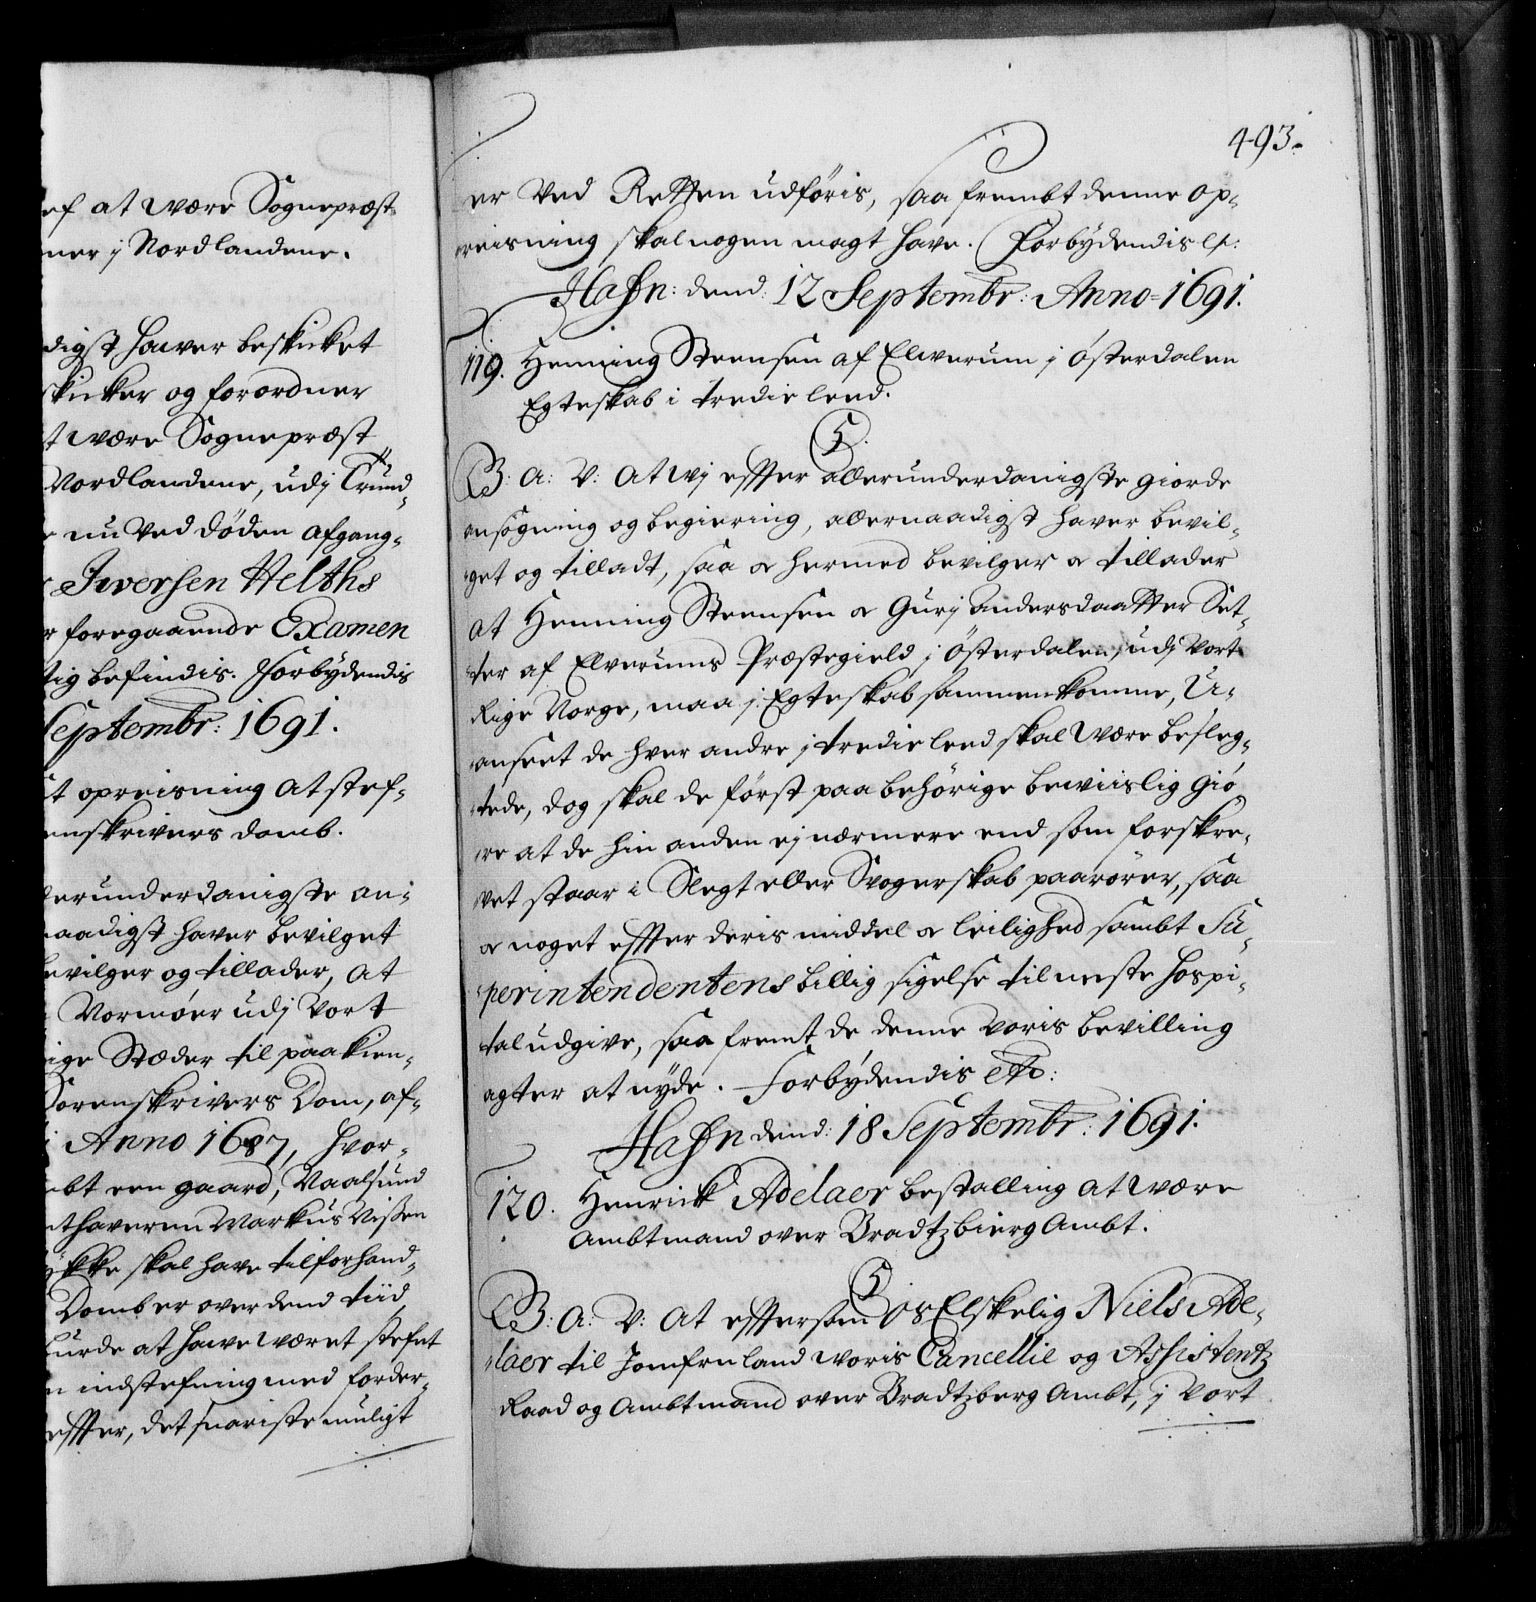 ef at være Sognepræst
ner j Nordlandene.
digst hawer beskicket
skicker og forordner
t være Sognepræst
Nordlandene, udj Trund-
nu ved døden afgang-
Iversen Helths
r foregaaende Examen
tig befindis. Forbydendis
Septembr: 1691.
t opreisning at stef-
enskrivers domb.
lerunderdanigste an-
naadigst haver bevilget
bevilger og tillader, at
Vormøer udj Vort
ige Stæder til paakien-
Sorenskrivers Dom, af-
Anno 1687, hvor-
mbt een gaard, Vaalsund
thaveren Markus Nissen
ykke skal have tilforhand-
Domb er over dend tiid
burde at hawe været stefnt
n indstefning med forder-
effter, det snariste muligt
493.
er ved Retten udføris, saa frembt denne op-
reisning skal nogen magt have. Forbydendis etc:
Hafn: dend: 12 Septembr: Anno=1691.
119. Henning Steensen af Elwerum j Østerdalen
Egteskab i tredie leed.
5
G: A: V: At wj effter allerunderdanigste giorde
ansøgning og begiering, allernaadigst haver bevil-
get og tilladt, saa og hermed bevilger og tillader
at Henning Steensen og Gurj Andersdaatter Set-
ter af Elverums Præstegield j Østerdalen, udj Vort
Rige Norge, maa j Egteskab sammenkomme, U-
anseet de hver andre j tredie leed skal være besleg-
tede, dog skal de først paa behørige beviislig giö-
re at de hin anden ej nærmere end som forskre-
vet staar i Slegt eller Svogerskab paarører, saa
og noget effter deris middel og leilighed sambt Su-
perintendentens billig sigelse til neste Hospi-
tal udgive, saa fremt de denne voris bevilling
agter at nyde. Forbydendis etc:
Hafn dend: 18 Septembr: 1691.
120. Henrick Adelaer bestalling at være
Ambtmand over Bradtzbierg Ambt.
5
G: A: V: At effterson Os Elskelig Niels Ade-
laer til Jomfruland woris Cancellie og Assistentz
Raad og Ambtmand over Bradtzberg Ambt, j Vort